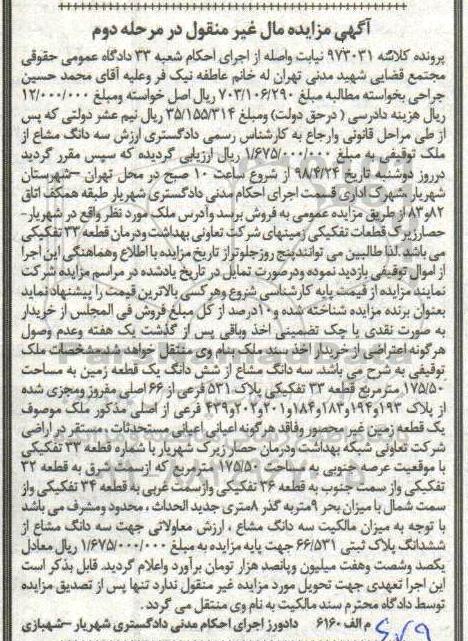 آگهی مزایده مال غیر منقول در مرحله دوم
پرونده کلاسه ۹۷۳۰۳۱ نیابت واصله از اجرای احکام شعبه ۳۳ دادگاه عمومی حقوقی
مجتمع قضایی شهید مدنی تهران له خانم عاطفه نیک فر وعلیه آقای محمد حسین
جراحی بخواسته مطالبه مبلغ ۷۰۳/۱۰۶/۲۹۰ ریال اصل خواسته ومبلغ ۱۲/۰۰۰/۰۰۰
ریال هزینه دادرسی ( درحق دولت) ومبلغ ۳۵/۱۵۵/۳۱۴ ریال نیم عشر دولتی که پس
از طی مراحل قانونی وارجاع به کارشناس رسمی دادگستری ارزش سه دانگ مشاع از
ملک توقیفی به مبلغ ۱/۶۷۵/۰۰۰/۰۰۰ ریال ارزیابی گردیده که سپس مقرر گردید
درروز دوشنبه تاریخ ۹۸/۴/۲۴ از شروع ساعت ۱۰ صبح در محل تهران –شهرستان
شهریار ،شهرک اداری قسمت اجرای احکام مدنی دادگستری شهریار طبقه همکف اتاق
۸۲و۸۳ از طریق مزایده عمومی به فروش برسد وآدرس ملک مورد نظر واقع در شهریار-
حصارزیرک قطعات تفکیکی زمینهای شرکت تعاونی بهداشت ودرمان قطعه ۳۳ تفکیکی
می باشد لذا طالبین می توانندپنج روزجلوتراز تاریخ مزایده با اطلاع وهماهنگی این اجرا
از اموال توقیفی بازدید نموده ودرصورت تمایل در تاریخ یادشده در مراسم مزایده شرکت
نمایند مزایده از قیمت پایه کارشناسی شروع وهرکسی بالاترین قیمت را پیشنهاد نماید
بعنوان برنده مزایده شناخته شده و۱۰درصد از کل مبلغ فروش فی المجلس از خریدار
به صورت نقدی یا چک تضمینی اخذ وباقی پس از گذشت یک هفته وعدم وصول
هرگونه اعتراضی از خریدار اخذ سند ملک بنام وی منتقل خواهد شد.مشخصات ملک
توقیفی به شرح می باشد. سه دانگ مشاع از شش دانگ یک قطعه زمین به مساحت
۱۷۵/۵۰ مترمربع قطعه ۳۳ تفکیکی پلاک ۵۳۱ فرعی از ۶۶ اصلی مفروز ومجزی شده
از پلاک ۱۹۳و۱۹۴و۱۸۳و۱۸۴و۲۰۱و۲۰۲و۴۳۹ فرعی از اصلی مذکور ملک موصوف
یک قطعه زمین غیر محصور وفاقد هرگونه اعیانی اعیانی مستحدثات ، مستقر در اراضی
شرکت تعاونی شبکه بهداشت ودرمان حصار زیرک شهریار با شماره قطعه ۳۳ تفکیکی
با موقعیت عرصه جنوبی به مساحت ۱۷۵/۵۰ مترمربع که ازسمت شرق به قطعه ۳۲
تفکیکی واز سمت جنوب به قطعه ۳۶ تفکیکی وازسمت غربی به قطعه ۳۴ تفکیکی واز
سمت شمال با میزان بحر ۹متربه گذر ۸متری جدید الحداث ، محدود ومشرف می باشد
با توجه به میزان مالکیت سه دانگ مشاع ، ارزش معاولاتی جهت سه دانگ مشاع از
ششدانگ پلاک ثبتی ۶۶/۵۳۱ جهت پایه مزایده به مبلغ ۱/۶۷۵/۰۰۰/۰۰۰ ریال معادل
یکصد وشصت وهفت میلیون وپانصد هزار تومان برآورد واعلام گردید. قابل بذکر است
این اجرا تعهدی جهت تحویل مورد مزایده غیر منقول ندارد تنها پس از تصدیق مزایده
توسط دادگاه محترم سند مالکیت به نام وی منتقل می گردد .
م الف ۶۱۶۰ دادورز اجرای احکام مدنی دادگستری شهریار –شهبازی